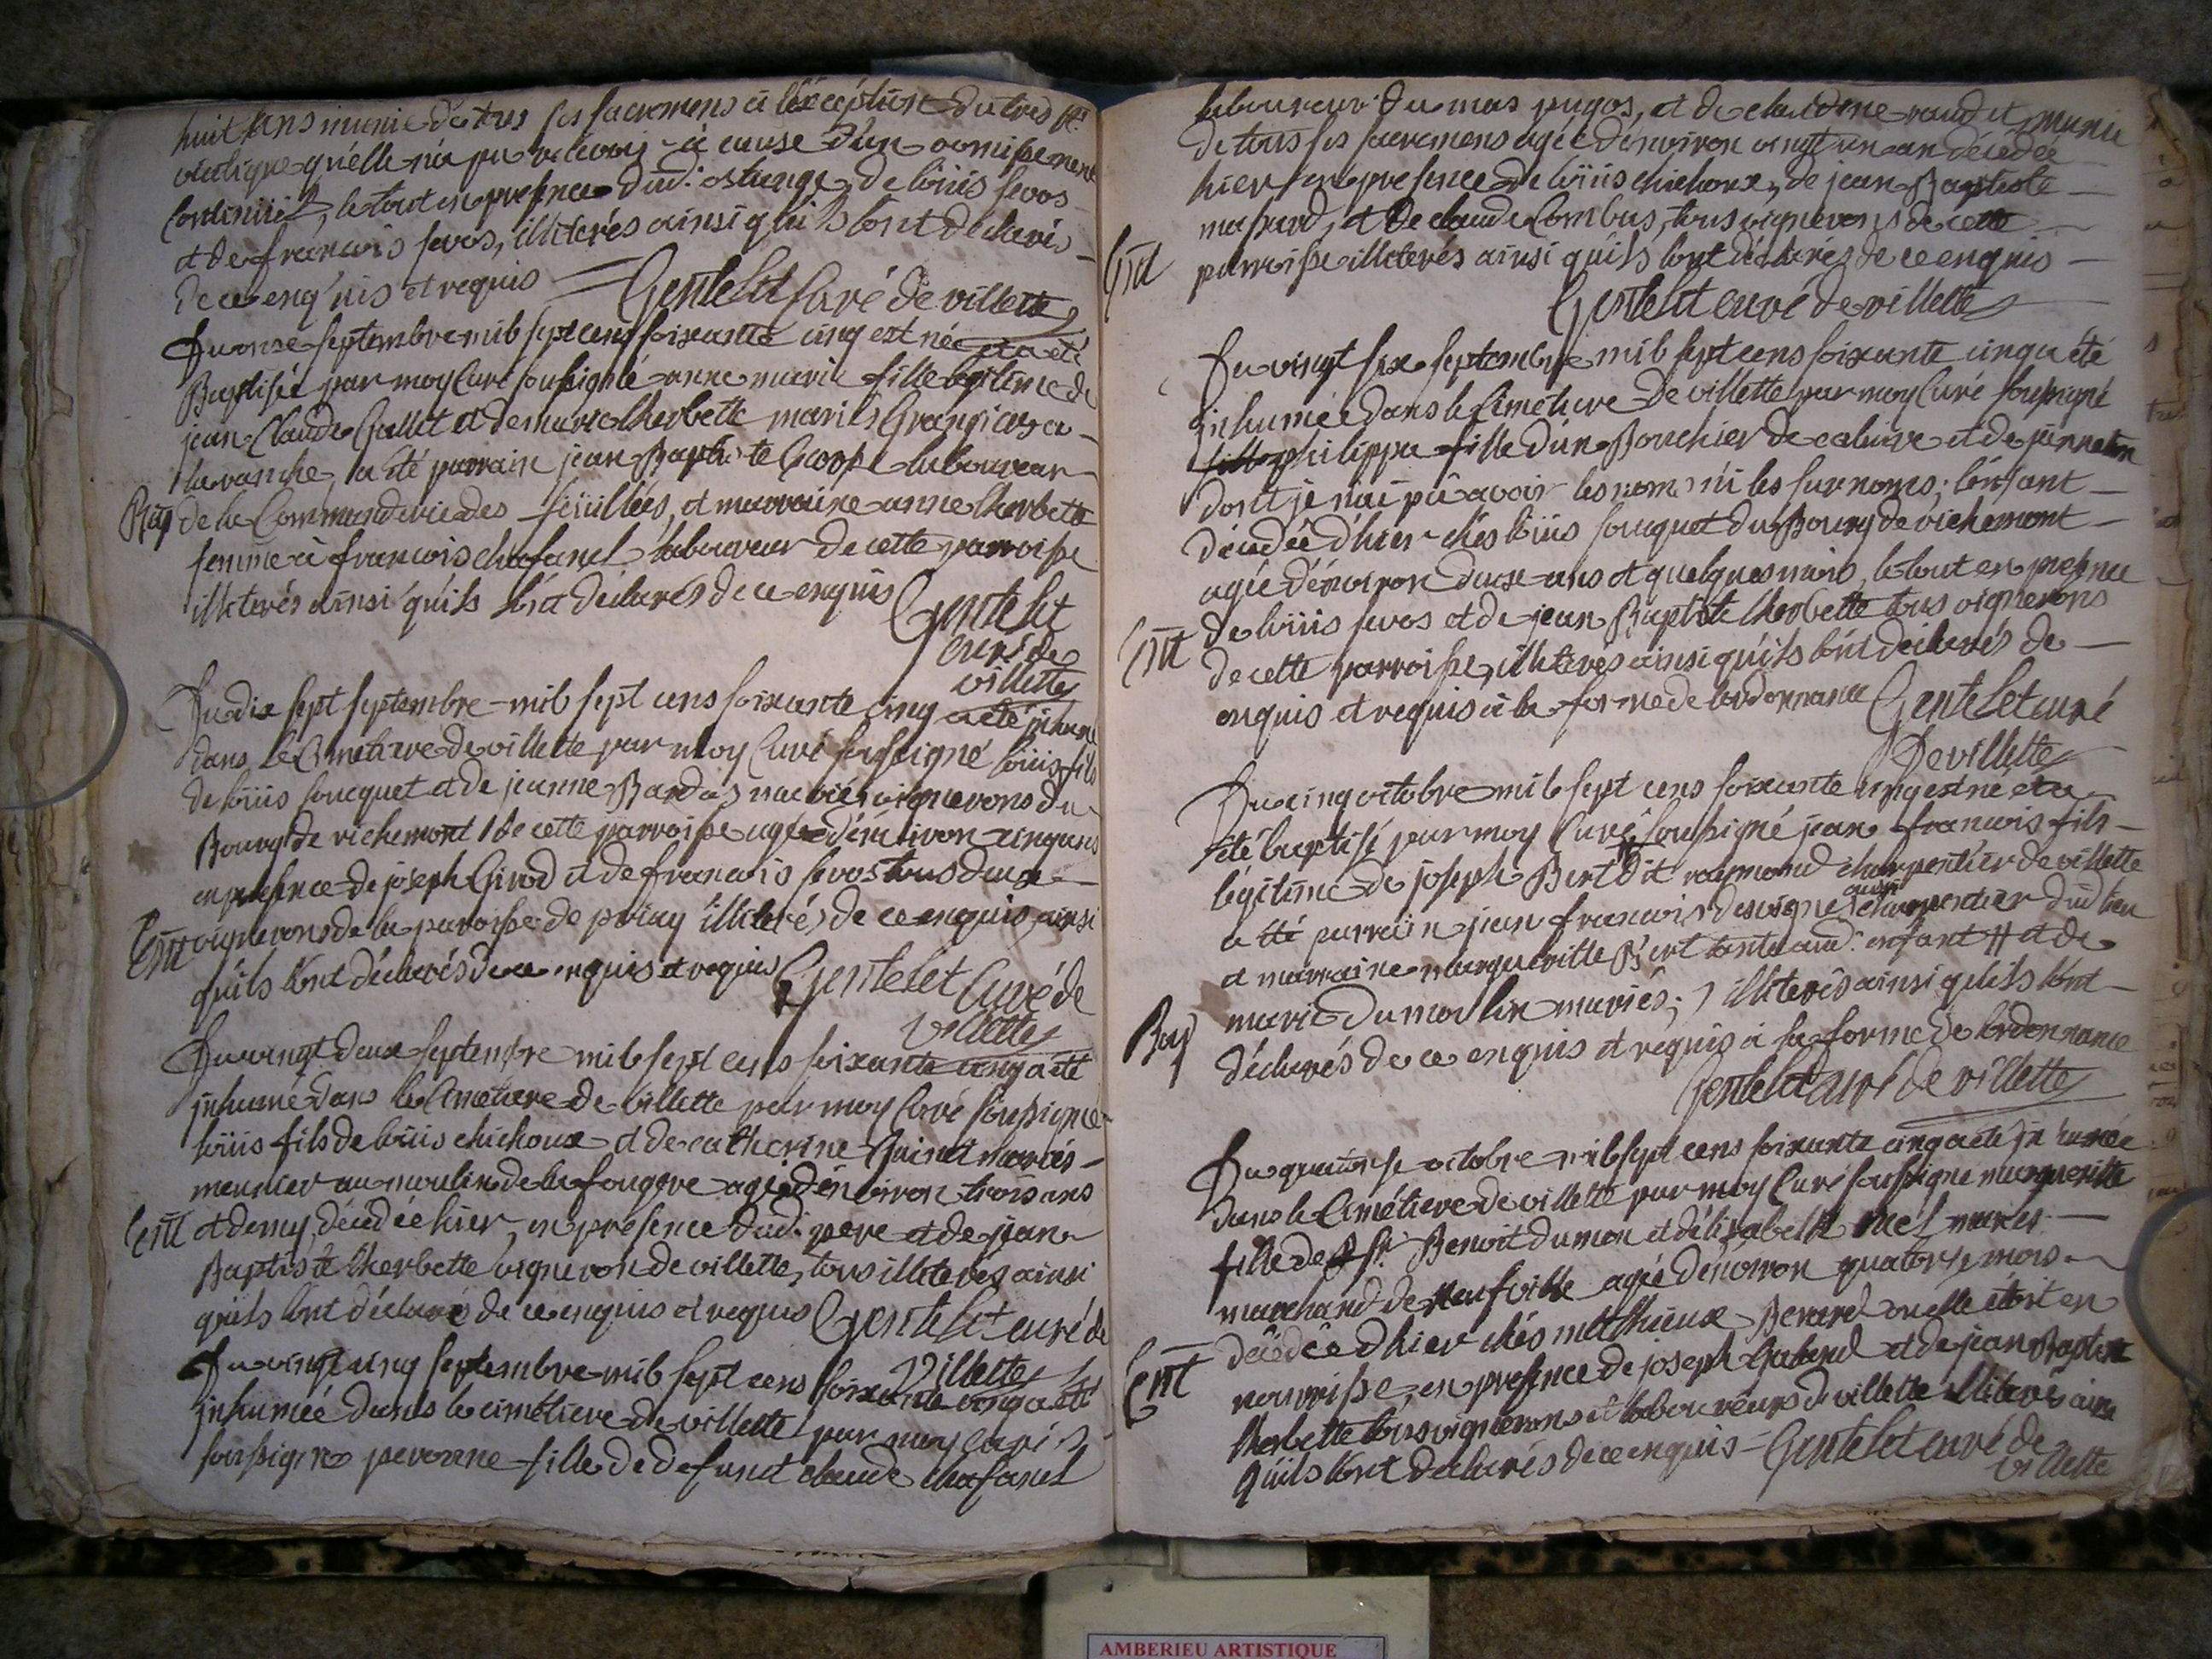 huit ans munie de tous ses sacremens à l'exception du tres st.
viatique qu'elle n'a pu recevoir à cause d'un vomissement
continuel, le tout en presence dud. ostange, de loüis sevos
et de françois sevos, illiterés ainsi qu'ils l'ont declarés
de ce enquis et requis Gentelet Curé de villette
Du onse septembre mil sept cens soixante cinq est née et a été
Baptisée par moy Curé soussigné anne marie fille légitime de
jean Claude Gallet et de marie lherbette mariés Grangiers a
la vanche, a été parrain jean Baptiste laboureur
Bap de la Commanderie des feüillées, et marraine anne lherbette
femme à françois chafanel laboureur de cette parroisse
illiterés ainsi qu'ils l'ont déclarés de ce enquis Gentelet
curé de
villette
Du dix sept septembre mil sept cens soixante cinq a été inhumé
dans le Cimetiere de villette par moy Curé soussigné loüis fils
de loüis foucquet et de jeanne Bardas mariés vignerons du
Bourg de richemont de cette parroisse agé d'environ cinq ans
en presence de joseph Girod et de françois sevos tous deux
Ent vignerons de la paroisse de priay illiterés de ce enquis ainsi
qu'ils l'ont déclarés de ce enquis et requis Gentelet Curé de
villette
Du vingt deux septembre mil sept cens soixante cinq a été
inhumé dans le Cimetiere de villette par moy Curé soussigné
loüis fils de loüis chichoux et de catherine Quinet mariés
meunier au moulin de la fougere agé d'environ trois ans
Ent et demy, décédé hier, en presence dud. pere et de jean
Baptiste lherbette vigneron de villette, tous illiterés ainsi
qu'ils l'ont déclaré de ce enquis et requis Gentelet curé de
villette
Du vingt cinq septembre mil sept cens soixante cinq a été
inhumée dans le cimetiere de villette par moy curé
soussigné peronne fille de defunt claude chafanel
laboureur du mas pugos, et de claudine vaudet munie
de tous ses sacremens agée d'environ vingt un an décédée
hier en presence de loüis chichoux, de jean Baptiste
massard, et de claude Combus, tous vignerons de cette
Ent parroisse illiterés ainsi qu'ils l'ont déclarés de ce enquis
Gentelet curé de villette
Du vingt six septembre mil sept cens soixante cinq a été
inhumée dans le Cimetiere de villette par moy Curé soussigné
fille philippa fille d'un Bouchier de caluire et de jeanneton
dont je n'ai pû avoir les noms ni les surnoms; l'enfant
décédée d'hier chés loüis foucquet du Bourg de richemont
agée d'environ deux ans et quelques mois, le tout en presence
de loüis sevos et de jean Baptiste lherbette tous vignerons
Ent de cette parroisse, illiterés ainsi qu'ils l'ont declarés de
enquis et requis à la forme de lordonnance Gentelet curé
De villette
Du cinq octobre mil sept cens soixante cinq est né et a
été baptisé par moy Curé soussigné jean françois fils
légitime de joseph Bert dit raymond charpentier de villette
a été parrain jean francois desvigne aussi charpentier dud lieu
et marraine margueritte Bert tante aud. enfant # et de
marie Dumoulin mariés; illiterés ainsi qu'ils l'ont
Bap déclarés de ce enquis et requis à la forme de lordonnance
Gentelet curé de villette
Du quatorse octobre mil sept cens soixante cinq a été inhumée
dans le Cimétiere de villette par moy Curé soussigné margueritte
fille de Sr. Benoit dumon et d'élisabeth mariés
marchand de neufville agée d'environ quatorse mois
décédée d'hier chés matthieux Benard ou elle étoit en
Ent nourrisse, en presence de joseph Galand et de jean Baptiste
lherbette tous vignerons et laboureurs de villette illiterés ainsi
qu'ils l'ont declarés de ce enquis Gentelet curé de
villette
AMBERIEU ARTISTIQUE